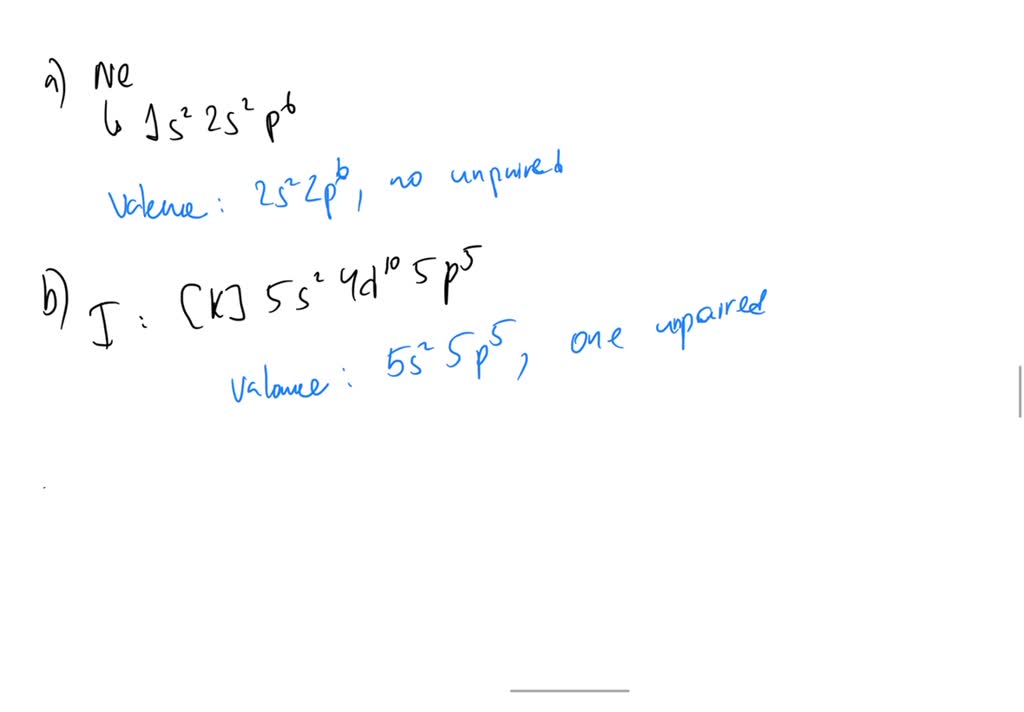 a) Ne
↳ 1s² 2s² p⁶
Valence: 2s² 2p⁶, no unpaired
b) I: [K] 5s² 4d¹⁰ 5p⁵
Valance: 5s² 5p⁵, one unpaired